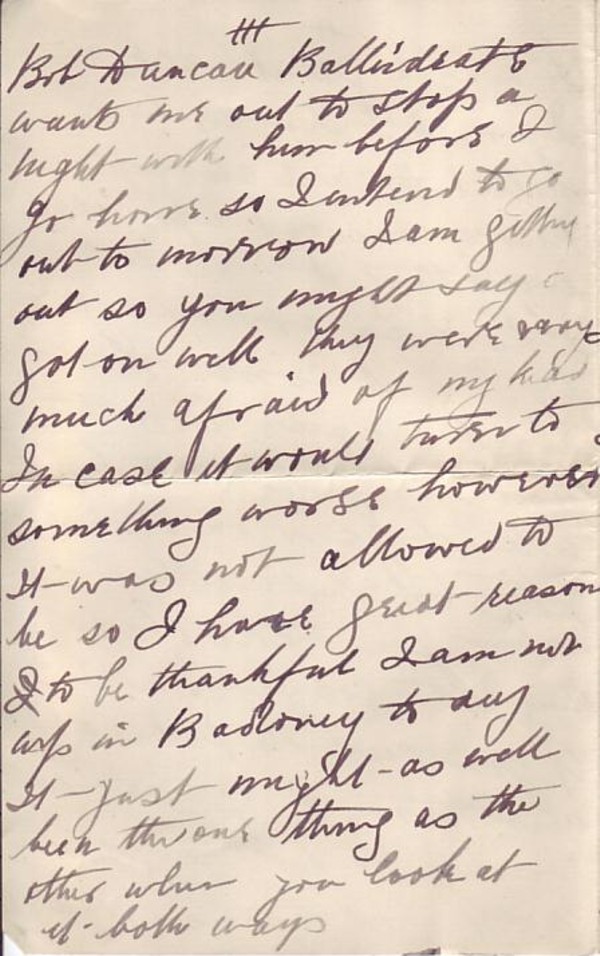 III
Bob Duncan Ballindrate
wants me out to stop a
night with him before I
go home so I intend to go
out to morrow I am getting
out so you might say I
got on well they were very
much afraid of my head
In case it would turn to
something worse however
it was not allowed to
be so I have great reason
I to be thankful I am not
up in Badoney to day
It just might as well
been the one thing as the
other when you look at
it both ways